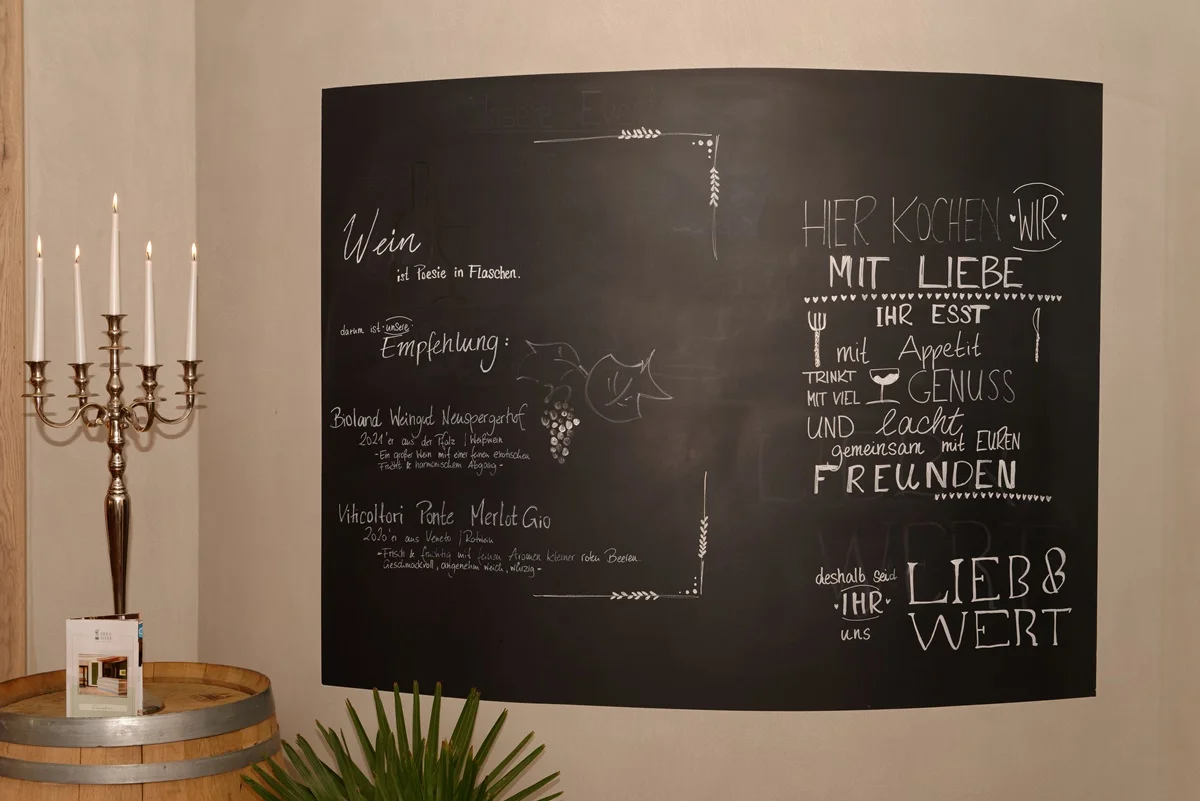 Unsere Events
Wein
ist Poesie in Flaschen.
darum ist unsere
Empfehlung:
Bioland Weingut Neuspergerhof
2021'er aus der Pfalz | Weißwein
-Ein großer Wein mit einer feinen exotischen
Frucht & harmonischem Abgang-
Viticoltori Ponte Merlot Gio
2020'er aus Veneto | Rotwein
-Frisch & fruchtig mit feinen Aromen kleiner roten Beeren.
Geschmackvoll, angenehm weich, würzig-
HIER KOCHEN WIR
MIT LIEBE
IHR ESST
mit Appetit
TRINKT
MIT VIEL GENUSS
UND lacht
gemeinsam mit EUREN
FREUNDEN
deshalb seid
IHR
uns
LIEB &
WERT